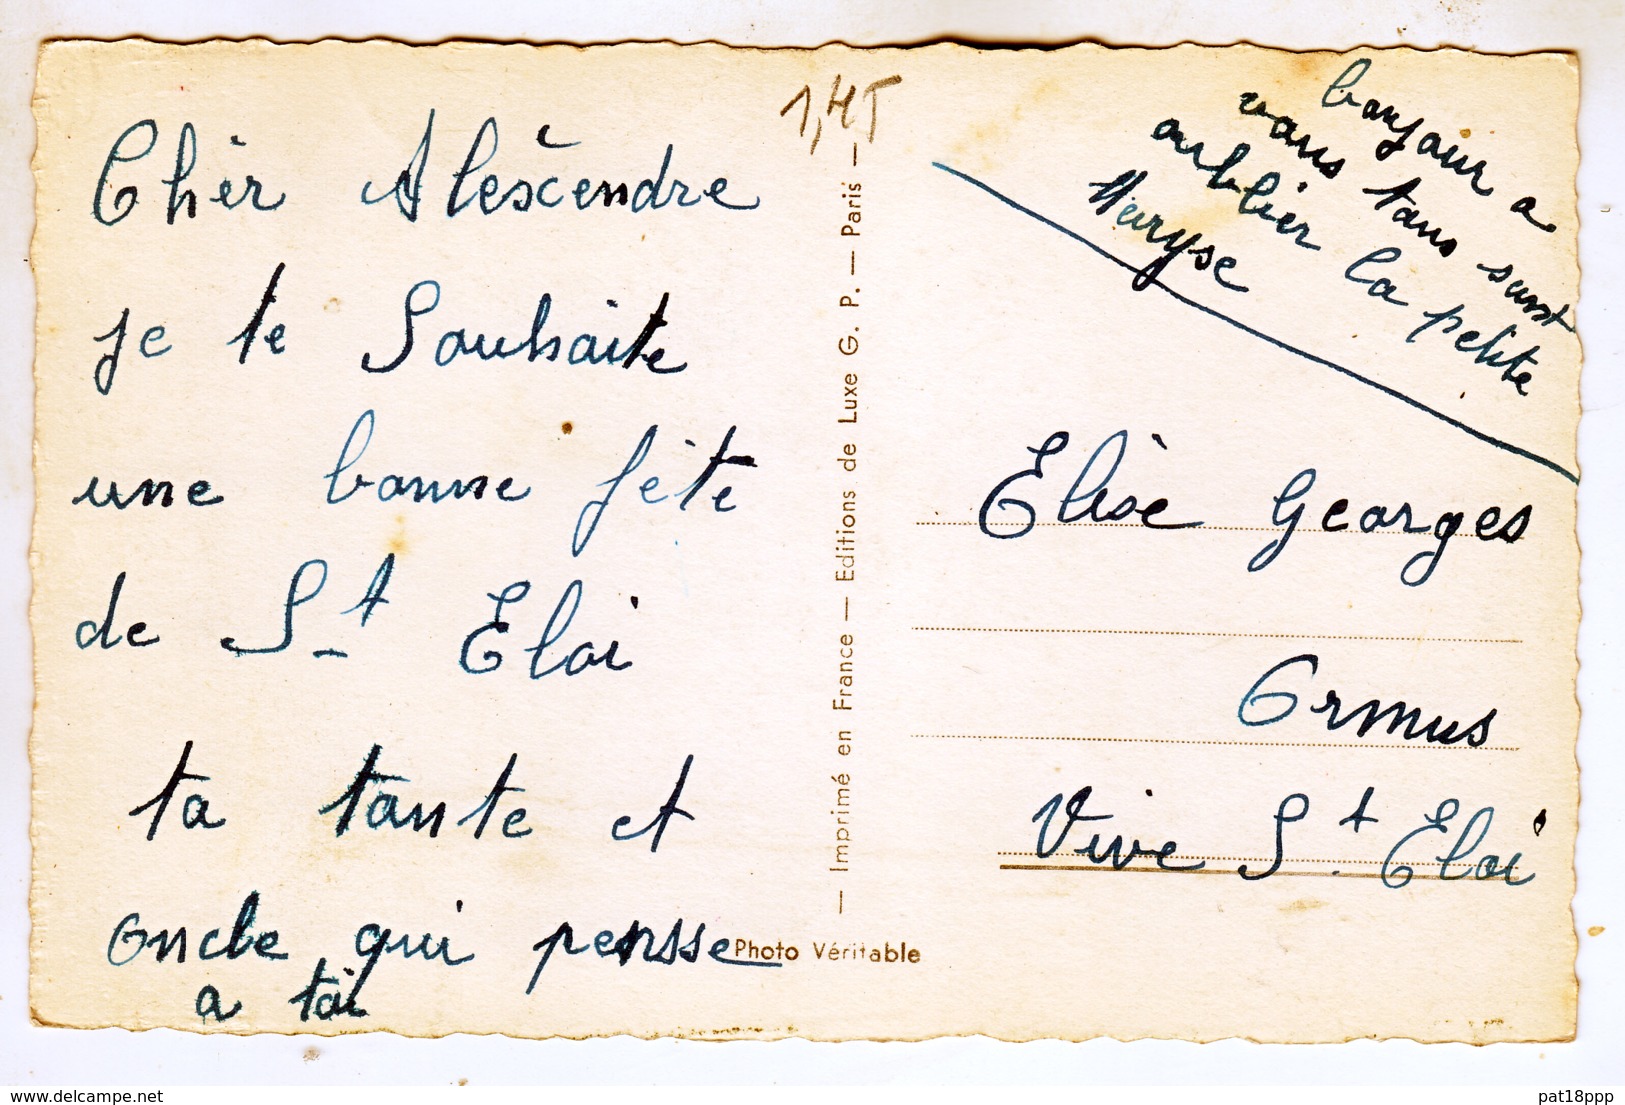 Chèr Alèscendre
je te Souhaite
une bonne fête
de St Eloi
ta tante et
oncle qui pensse
a toi
1,45
— Imprimé en France — Editions de Luxe G. P. — Paris —
Photo Véritable
bonjour a
vous tous sans
oublier la petite
Maryse
Elise Georges
Ormus
Vive St Eloi
pat18ppp